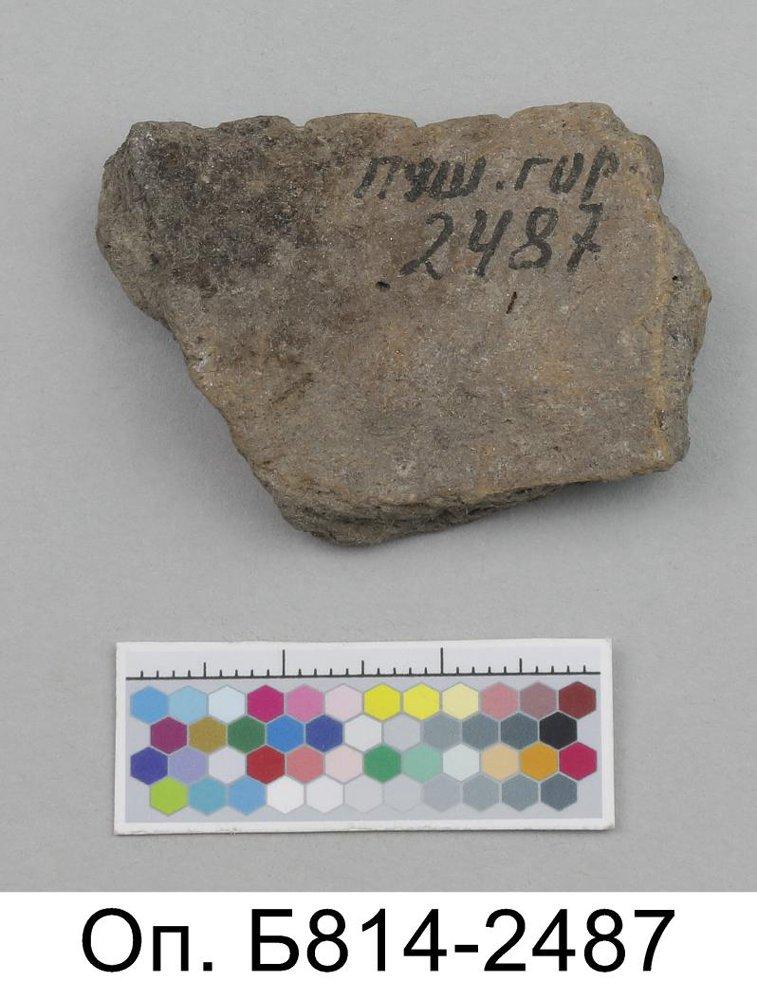 пуш. гор.
2487
Оп. Б814-2487